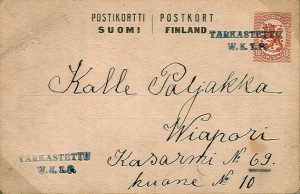 POSTIKORTTI POSTKORT
SUOMI FINLAND
TARKASTETTU
W.K.I.P.
Kalle Paljakka
Wiapori
Kasarmi № 69.
huone № 10
TARKASTETTU
W.K.I.P.